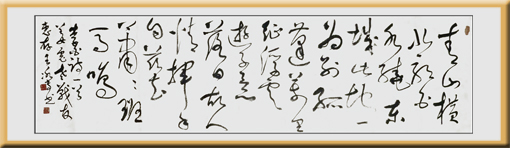 青山横
北郭白
水绕东
城此地一
为别孤
蓬万里
征浮云
游子意
落日故人
情挥手
自兹去
萧萧班
马鸣
李白诗一首
战友
惠存王